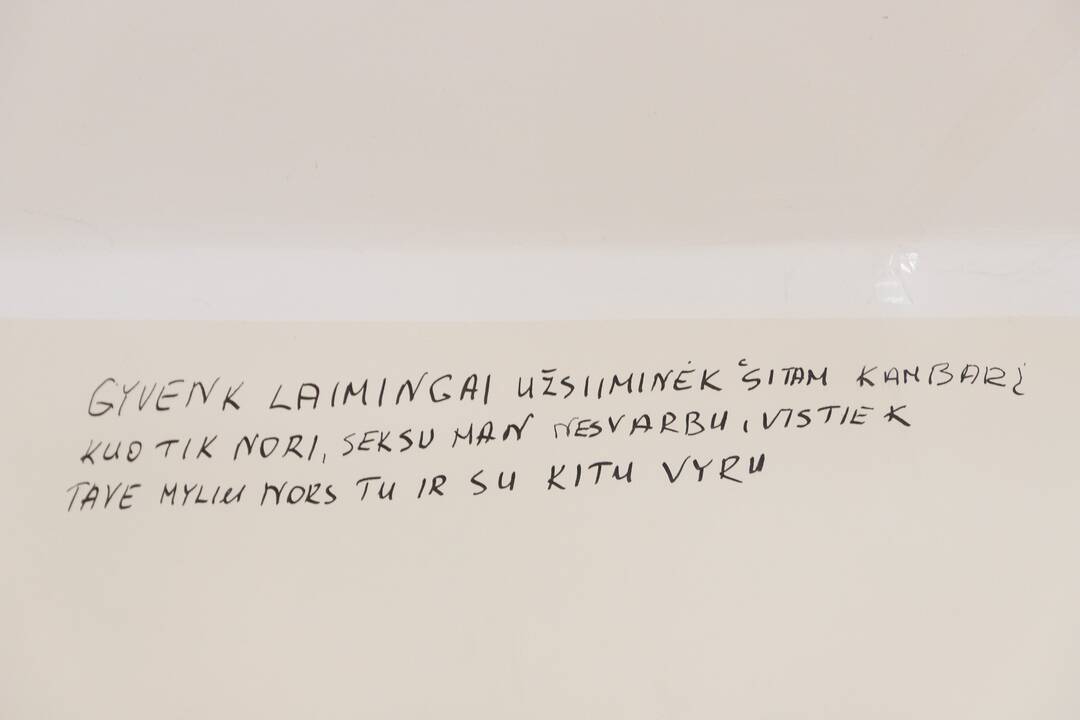 GYVENK LAIMINGAI UŽSIIMINĖK ŠITAM KAMBARĮ
KUO TIK NORI, SEKSU MAN NESVARBU, VISTIEK
TAVE MYLIU NORS TU IR SU KITU VYRU